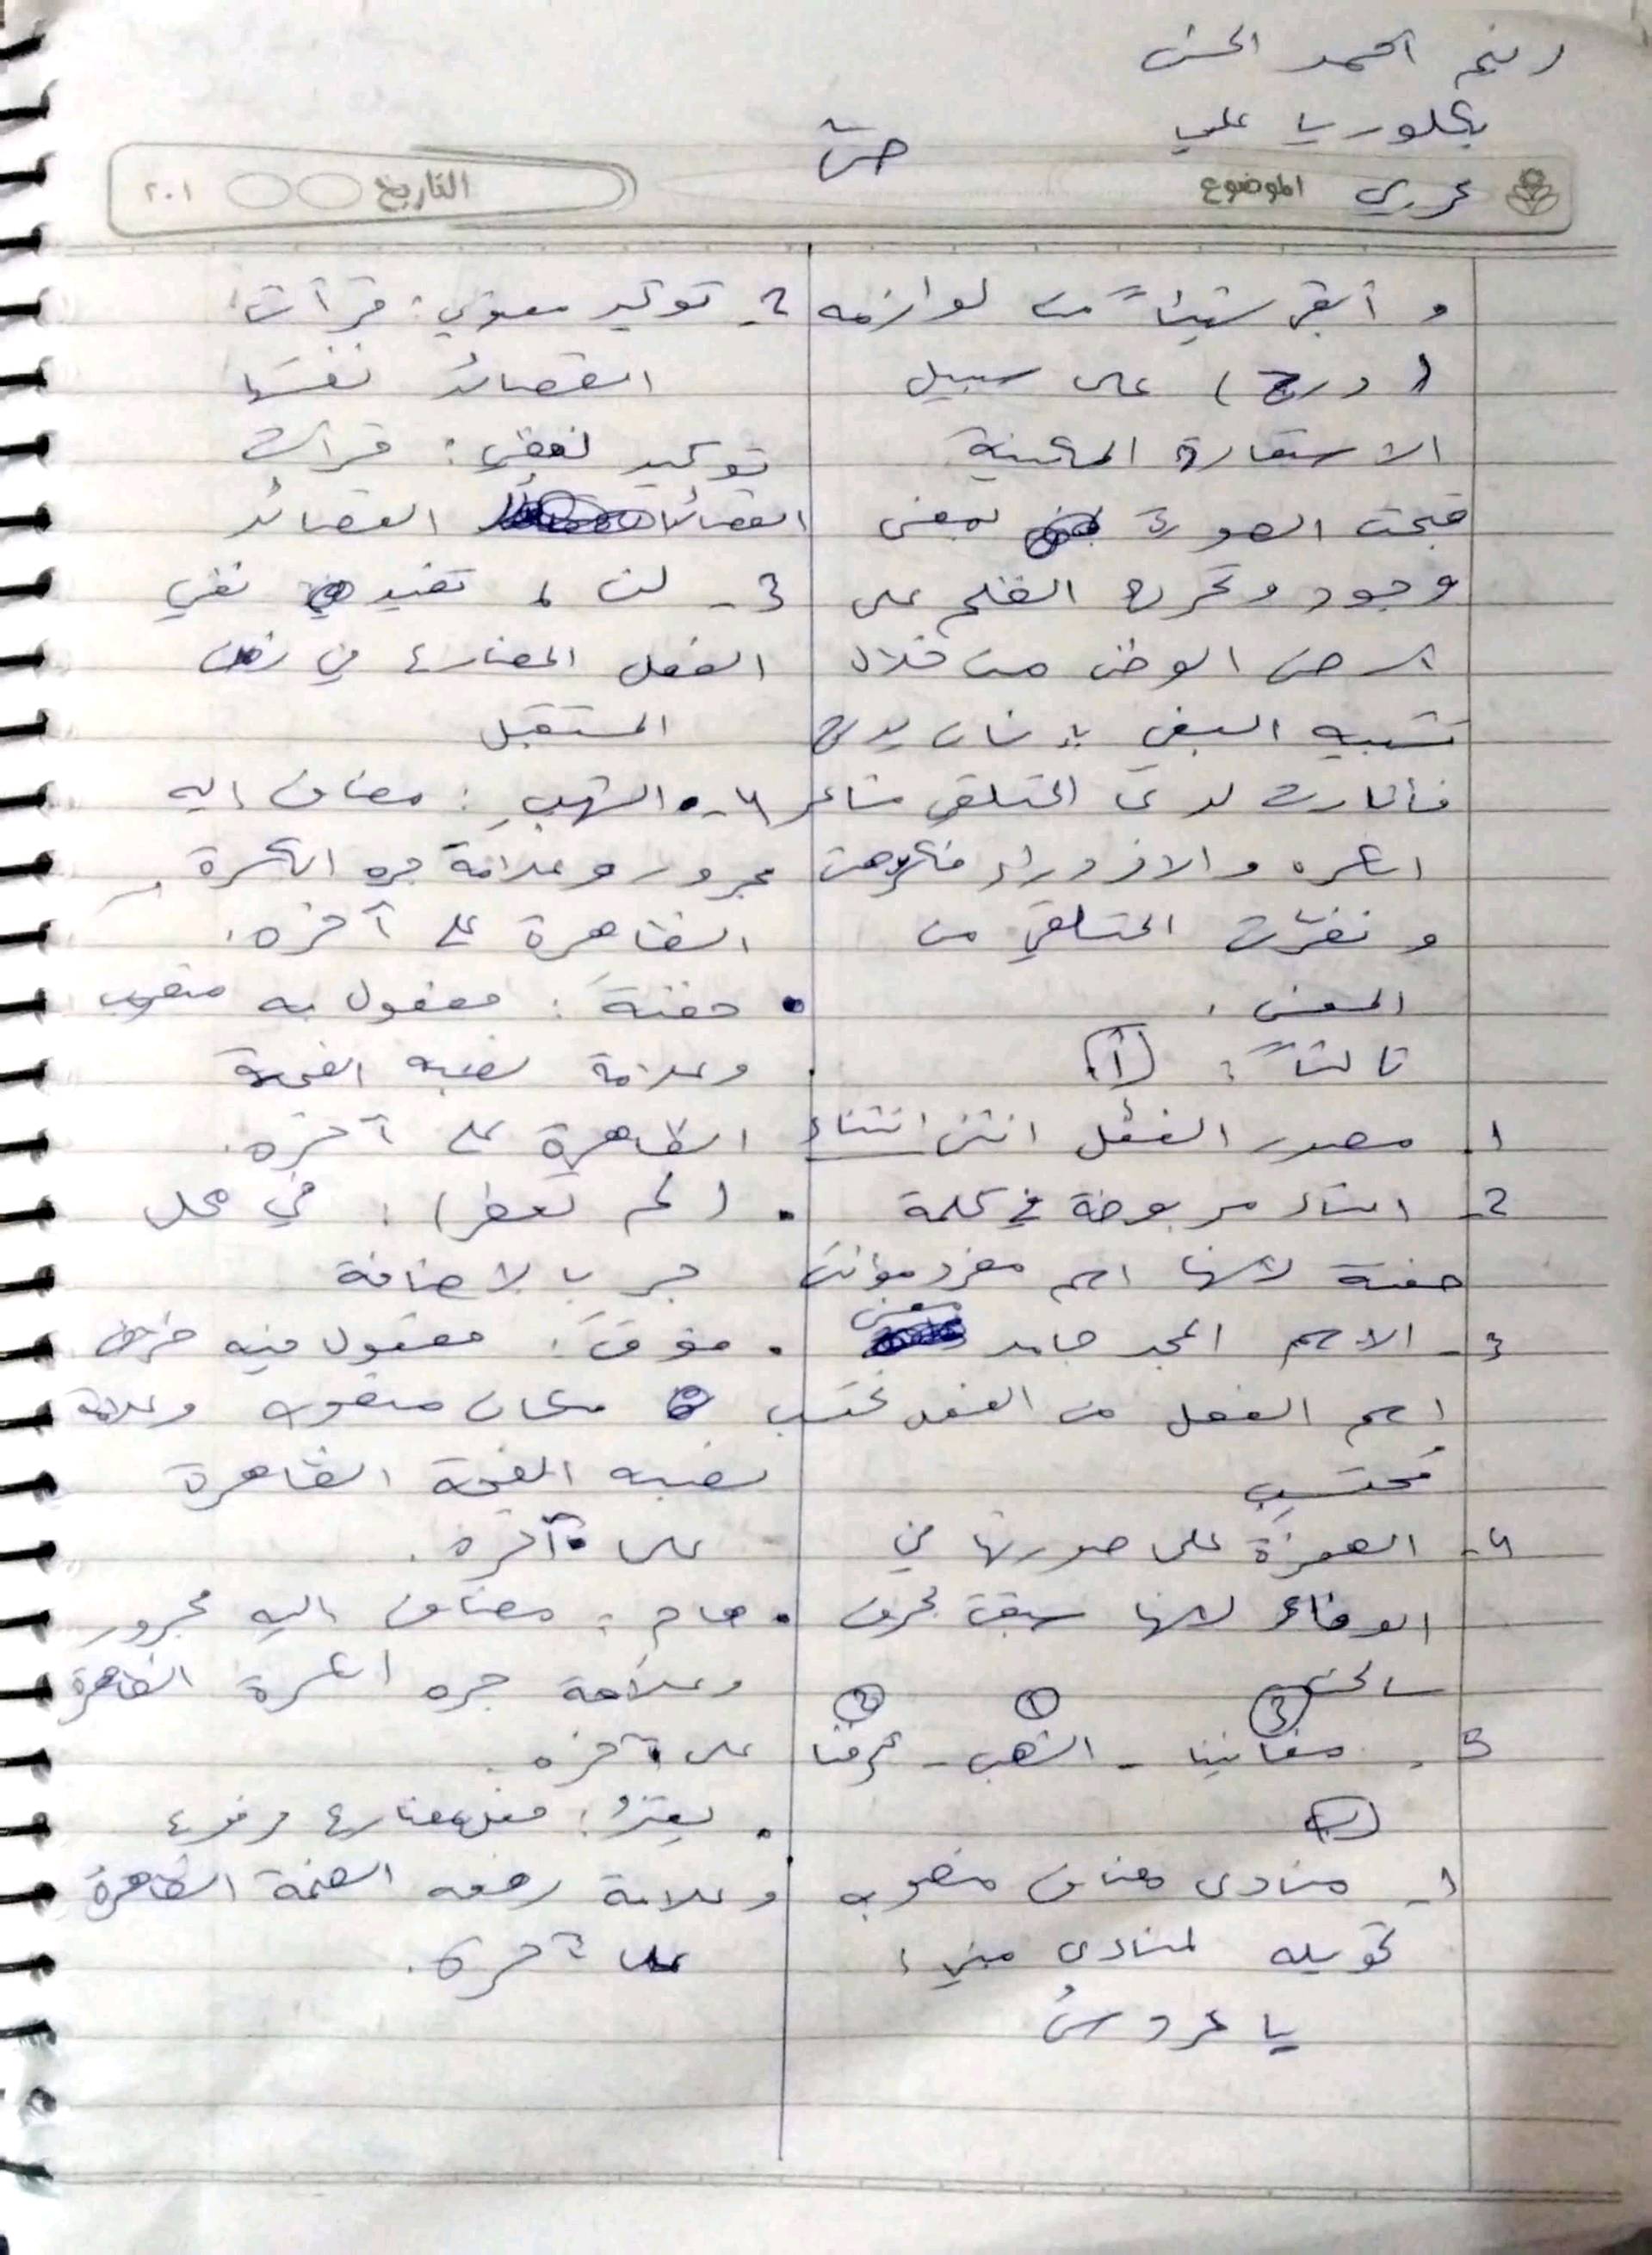 رنيم احمد الحسن
بكلوريا علمي
عربي الموضوع
التاريخ ٢٠١
و أبقى شيئاً من لوازمه
(درج) على سبيل
الاستعارة المكنية
قبحت الصورة بمعنى
وجود وتحرك الظلم على
ارض الوطن من خلال
تشبيه البغي بإنسان يدرج
فأثارت لدى المتلقي مشاعر
الكره والازدراء فكرهت
و نفرت المتلقي من
المعنى.
ثالثاً: (أ)
1. مصدر الفعل انتشى انتشاء
2- التاء مربوطة في كلمة
حفنة لأنها اسم مفرد مؤنث
3- الاسم المجد جامد معنى
اسم الفعل من الفعل تحتسب
مُحتسِب
4- الهمزة على صورتها في
لأنها سبقت بحرف
ساكن
③ ① ②
5. مغانينا - الشهب - عرفنا
(ب)
1- منادى مضاف منصوب
تحويله لمنادى مبني:
يا عروسُ
2- توكيد معنوي: قرأت
القصائدَ نفسَها
توكيد لفظي: قرأت
القصائد القصائد
3- لن ، تفيد نفي
الفعل المضارع في
المستقبل
4- • الشهبِ: مضاف إليه
مجرور وعلامة جره الكسرة
الظاهرة على آخره.
• حفنةَ: مفعول به منصوب
وعلامة نصبه الفتحة
الظاهرة على آخره.
• (لم تعطر): في محل
جر بالاضافة
• فوقَ: مفعول فيه ظرف
مكان منصوب وعلامة
نصبه الفتحة الظاهرة
على آخره.
• هام: مضاف إليه مجرور
وعلامة جره الكسرة الظاهرة
على آخره.
• يعتزُّ: فعل مضارع مرفوع
وعلامة رفعه الضمة الظاهرة
على آخره.